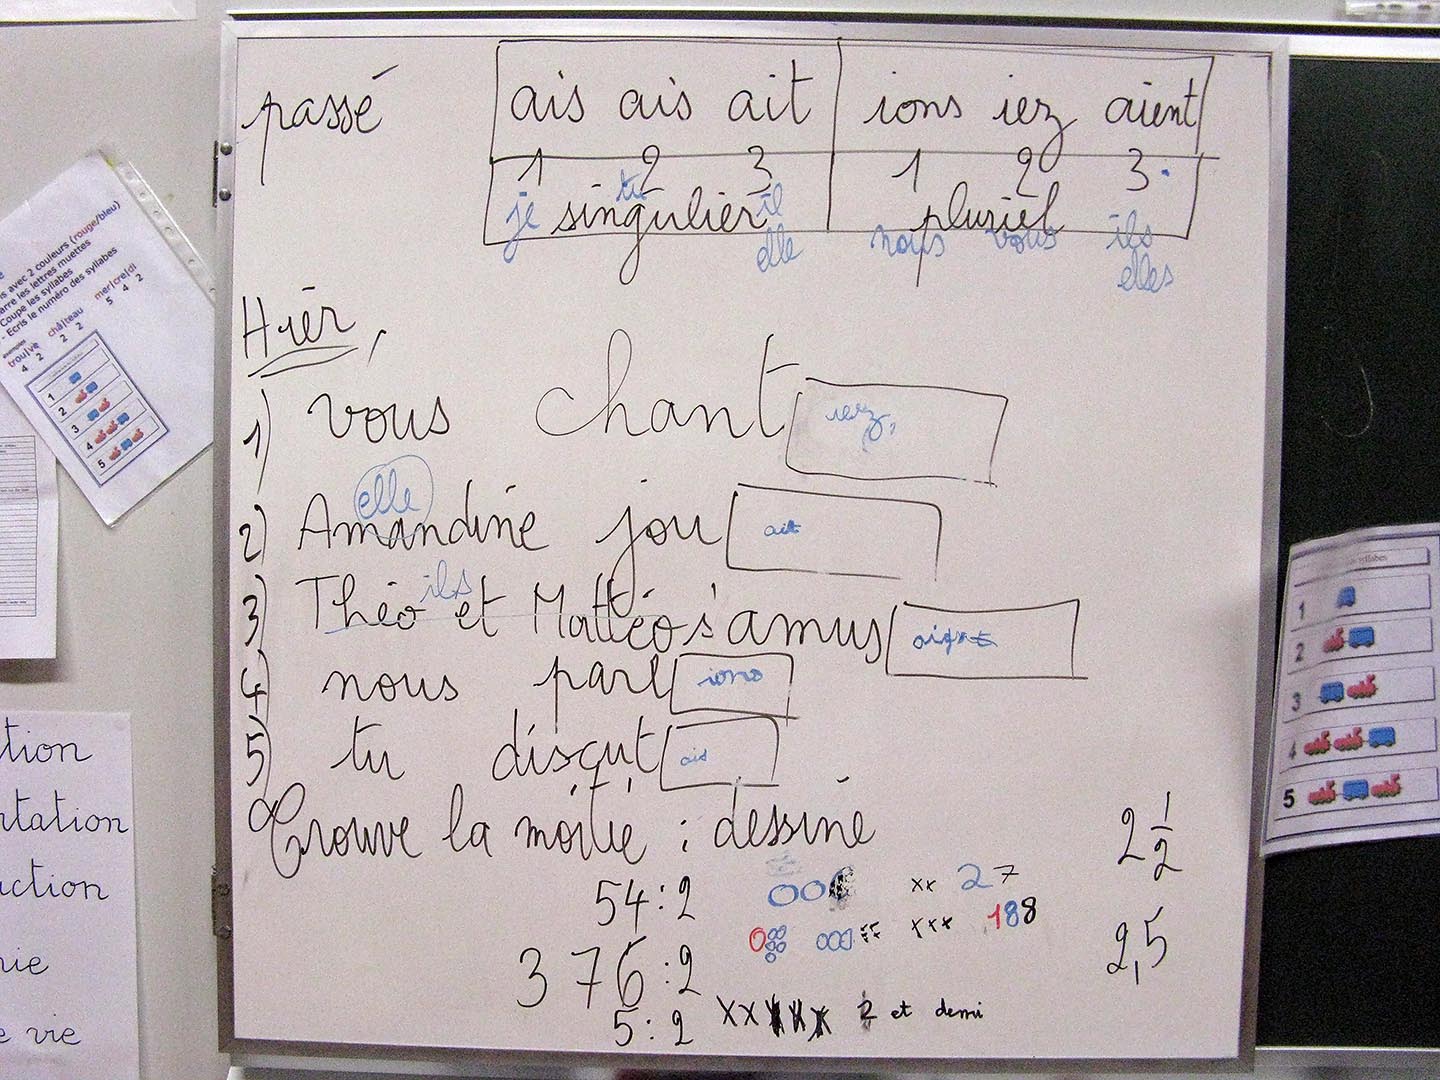 passé
ais ais ait ions iez aient
1 2 3 1 2 3
je tu il
singulier pluriel
elle nous vous ils
elles
Hier,
1) vous chant iez
elle
2) Amandine jou ait
ils
3) Théo et Mattéo s'amus aient
4) nous parl ions
5) tu discut ais
Trouve la moitié : dessine
54:2 xx 27
376:2 xxx 188
5:2 2 et demi
2 1/2
2,5
s avec 2 couleurs (rouge/bleu)
arre les lettres muettes
Coupe les syllabes
- Ecris le numéro des syllabes
exemples
trou/ve châ/teau mer/cre/di
4 2 2 2 5 4 2
1
2
3
4
5
tion
ntation
uction
nie
e vie
syllabes
1
2
3
4
5